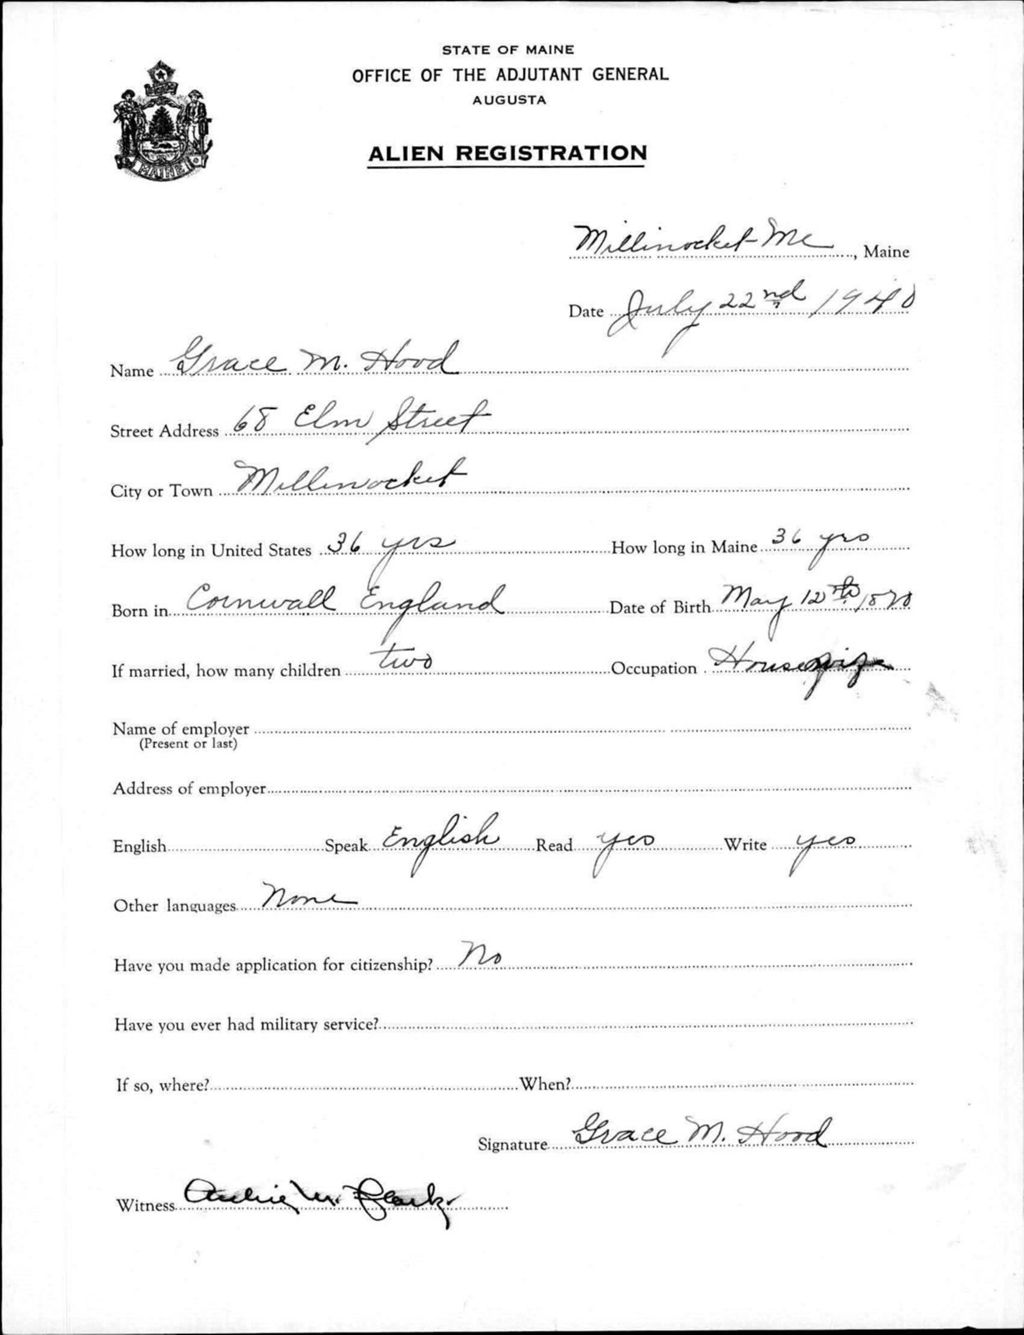 STATE OF MAINE
OFFICE OF THE ADJUTANT GENERAL
AUGUSTA
ALIEN REGISTRATION
MAINE
Millinocket - Me, Maine
Date July 22nd 1940
Name Grace M. Hood
Street Address 68 Elm Street
City or Town Millinocket
How long in United States 36 yrs How long in Maine 36 yrs
Born in Cornwall England Date of Birth May 12th 1870
If married, how many children two Occupation Housewife
Name of employer
(Present or last)
Address of employer
English Speak English Read yes Write yes
Other languages None
Have you made application for citizenship? No
Have you ever had military service?
If so, where? When?
Signature Grace M. Hood
Witness M. Clark